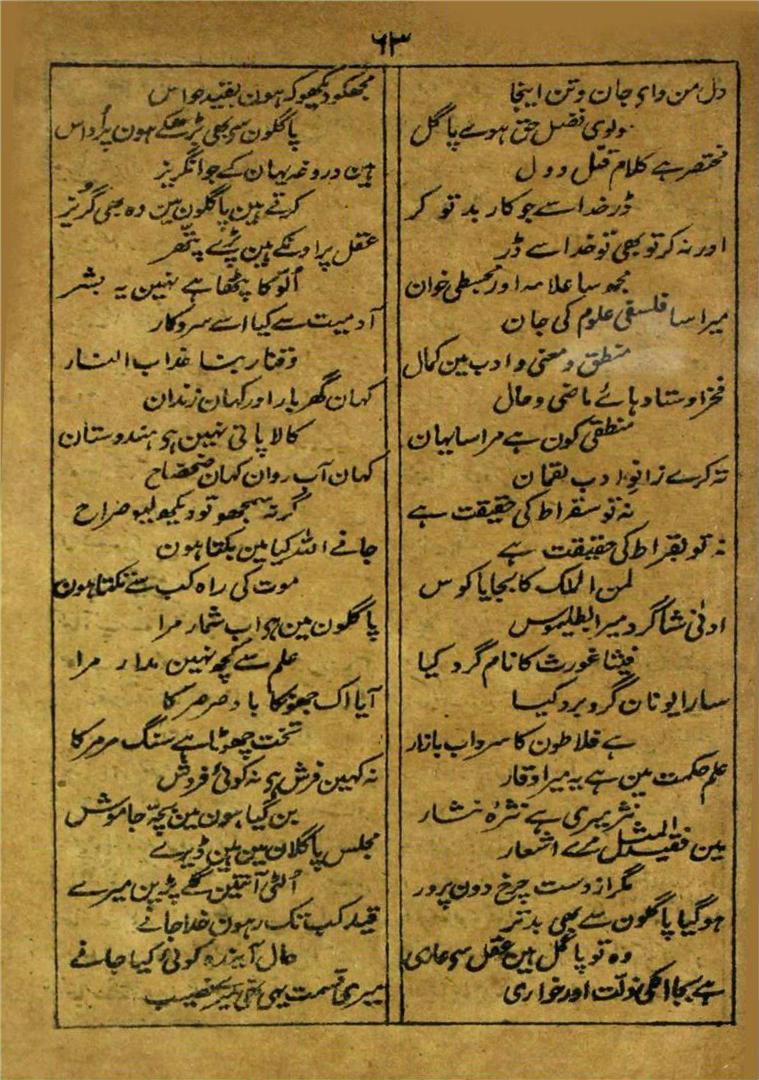 ۶۳
دل من واے جان وتن اینجا
مولوی فضل حق ہوے پاگل
مختصر ہے کلام قل ودل
ڈر خدا سے جو کار بد تو کر
اور نہ کر تو بھی تو خدا سے ڈر
مجھ سا علامہ اور مجسطی خوان
میرا سا فلسفی علوم کی جان
منطق ومعنی وادب مین کمال
فخر اوستاد ہائے ماضی وحال
منطقی کون ہے مرا سا یہان
تہ کرے زانوِ ادب لقمان
نہ تو سقراط کی حقیقت ہے
نہ تو بقراط کی حقیقت ہے
لمن الملک کا بجایا کوس
ادنیٰ شاگرد میرا بطلیموس
فیثاغورث کا نام گرد کیا
سارا یونان گرو برد کیا
ہے فلاطون کا سرد اب بازار
علم حکمت مین ہے یہ میرا وقار
نثر میری ہے نثرہ نثار
ہین فقید المثل مرے اشعار
مگر از دست چرخ دون پرور
ہوگیا پاگلون سے بھی بدتر
وہ تو پاگل ہین عقل سے عاری
ہے بجا انکی ذلت اور خواری
مجھکو دیکھو کہ ہون بقید حواس
پاگلون سے بھی بڑھکے ہون پر وداس
ہین دروغہ یہان کے جو انگریز
کرتے ہین پاگلون مین وہ بھی گریز
عقل پر اونکے ہین پڑے پتھر
اُلّو کا پٹھا ہے نہین یہ بشر
آدمیت سے کیا اسے سروکار
وقنا ربنا عذاب النار
کہان گھر بار اور کہان زندان
کالا پانی نہین ہی ہندوستان
کہان آب روان کہان ضحضاح
گر نہ سمجھو تو دیکھ لیو صراح
جانے اللہ کیا مین بکتا ہون
موت کی راہ کب سے تکتا ہون
پاگلون مین ہی اب شمار مرا
علم سے کچھ نہین مدار مرا
آیا اک جھونکا باد صرصر کا
تخت چھوٹا ہے سنگ مرمر کا
نہ کہین فرش ہی نہ کوئی فروش
بن گیا ہون مین بچّہ جاموش
مجلس پاگلان مین ہین ڈیرے
اُلٹی آنتین گلے پڑین میرے
قید کب تک رہون خدا جانے
حال آیندہ کوئی کیا جانے
میری قسمت یہی تھی میرے نصیب